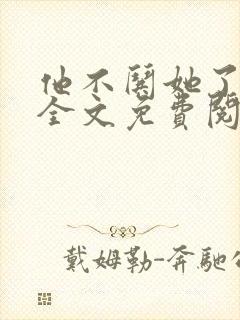 他不關她了
全文免費閱
戴姆勒-奔馳公